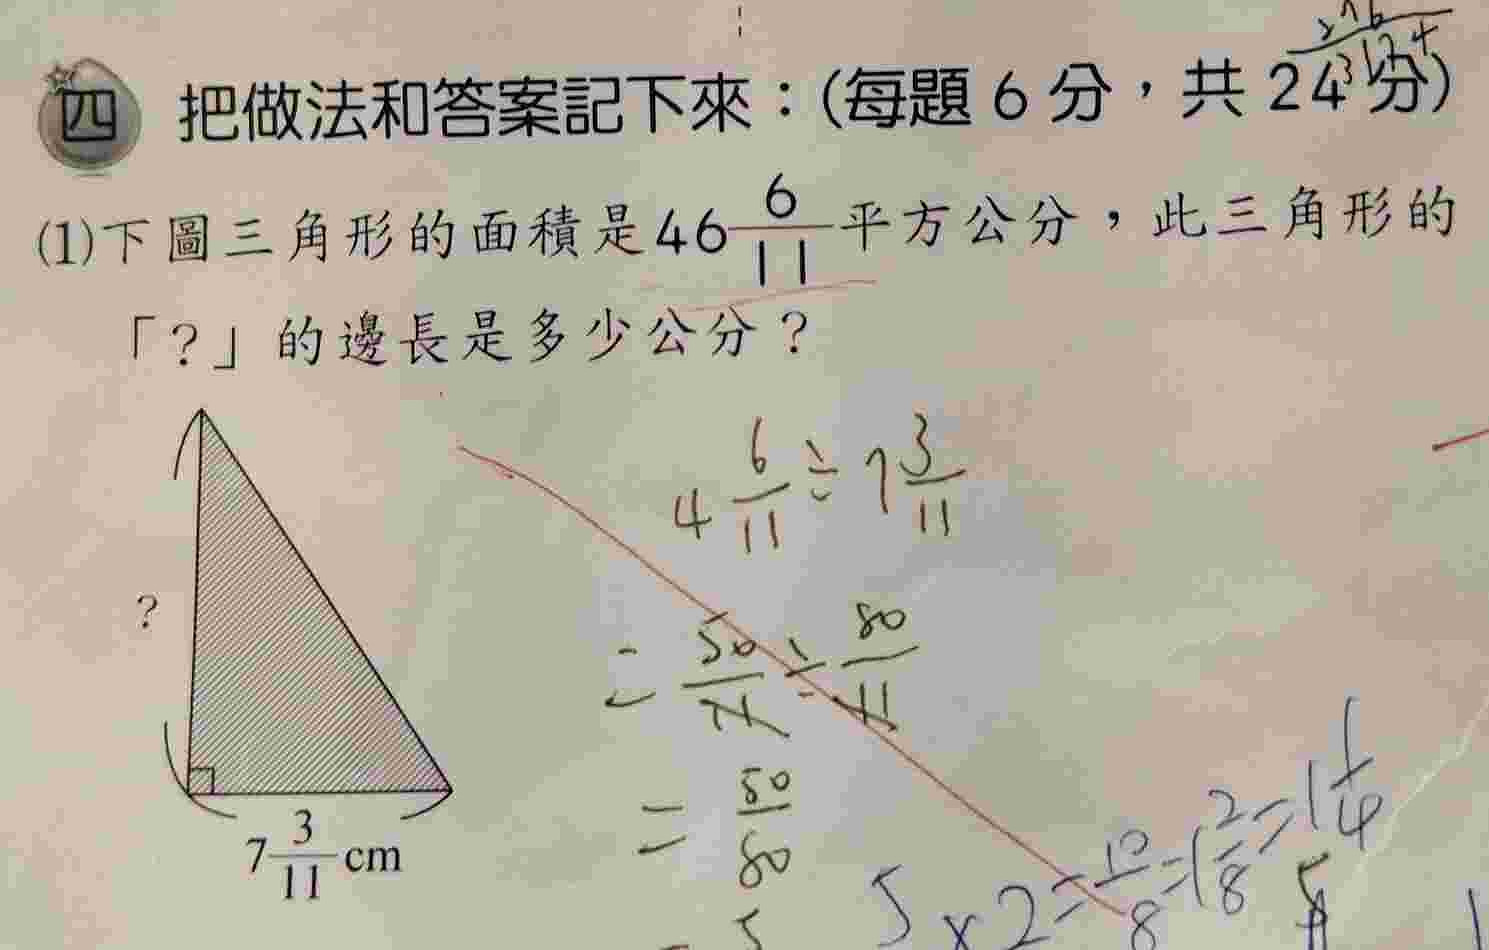 四 把做法和答案記下來：(每題 6 分，共 24 分)
(1)下圖三角形的面積是46 6/11 平方公分，此三角形的
「?」的邊長是多少公分？
4 6/11 ÷ 7 3/11
?
= 50/11 ÷ 80/11
= 50/80
7 3/11 cm
5 × 2 = 10/8 = 1 2/8 = 1 1/4